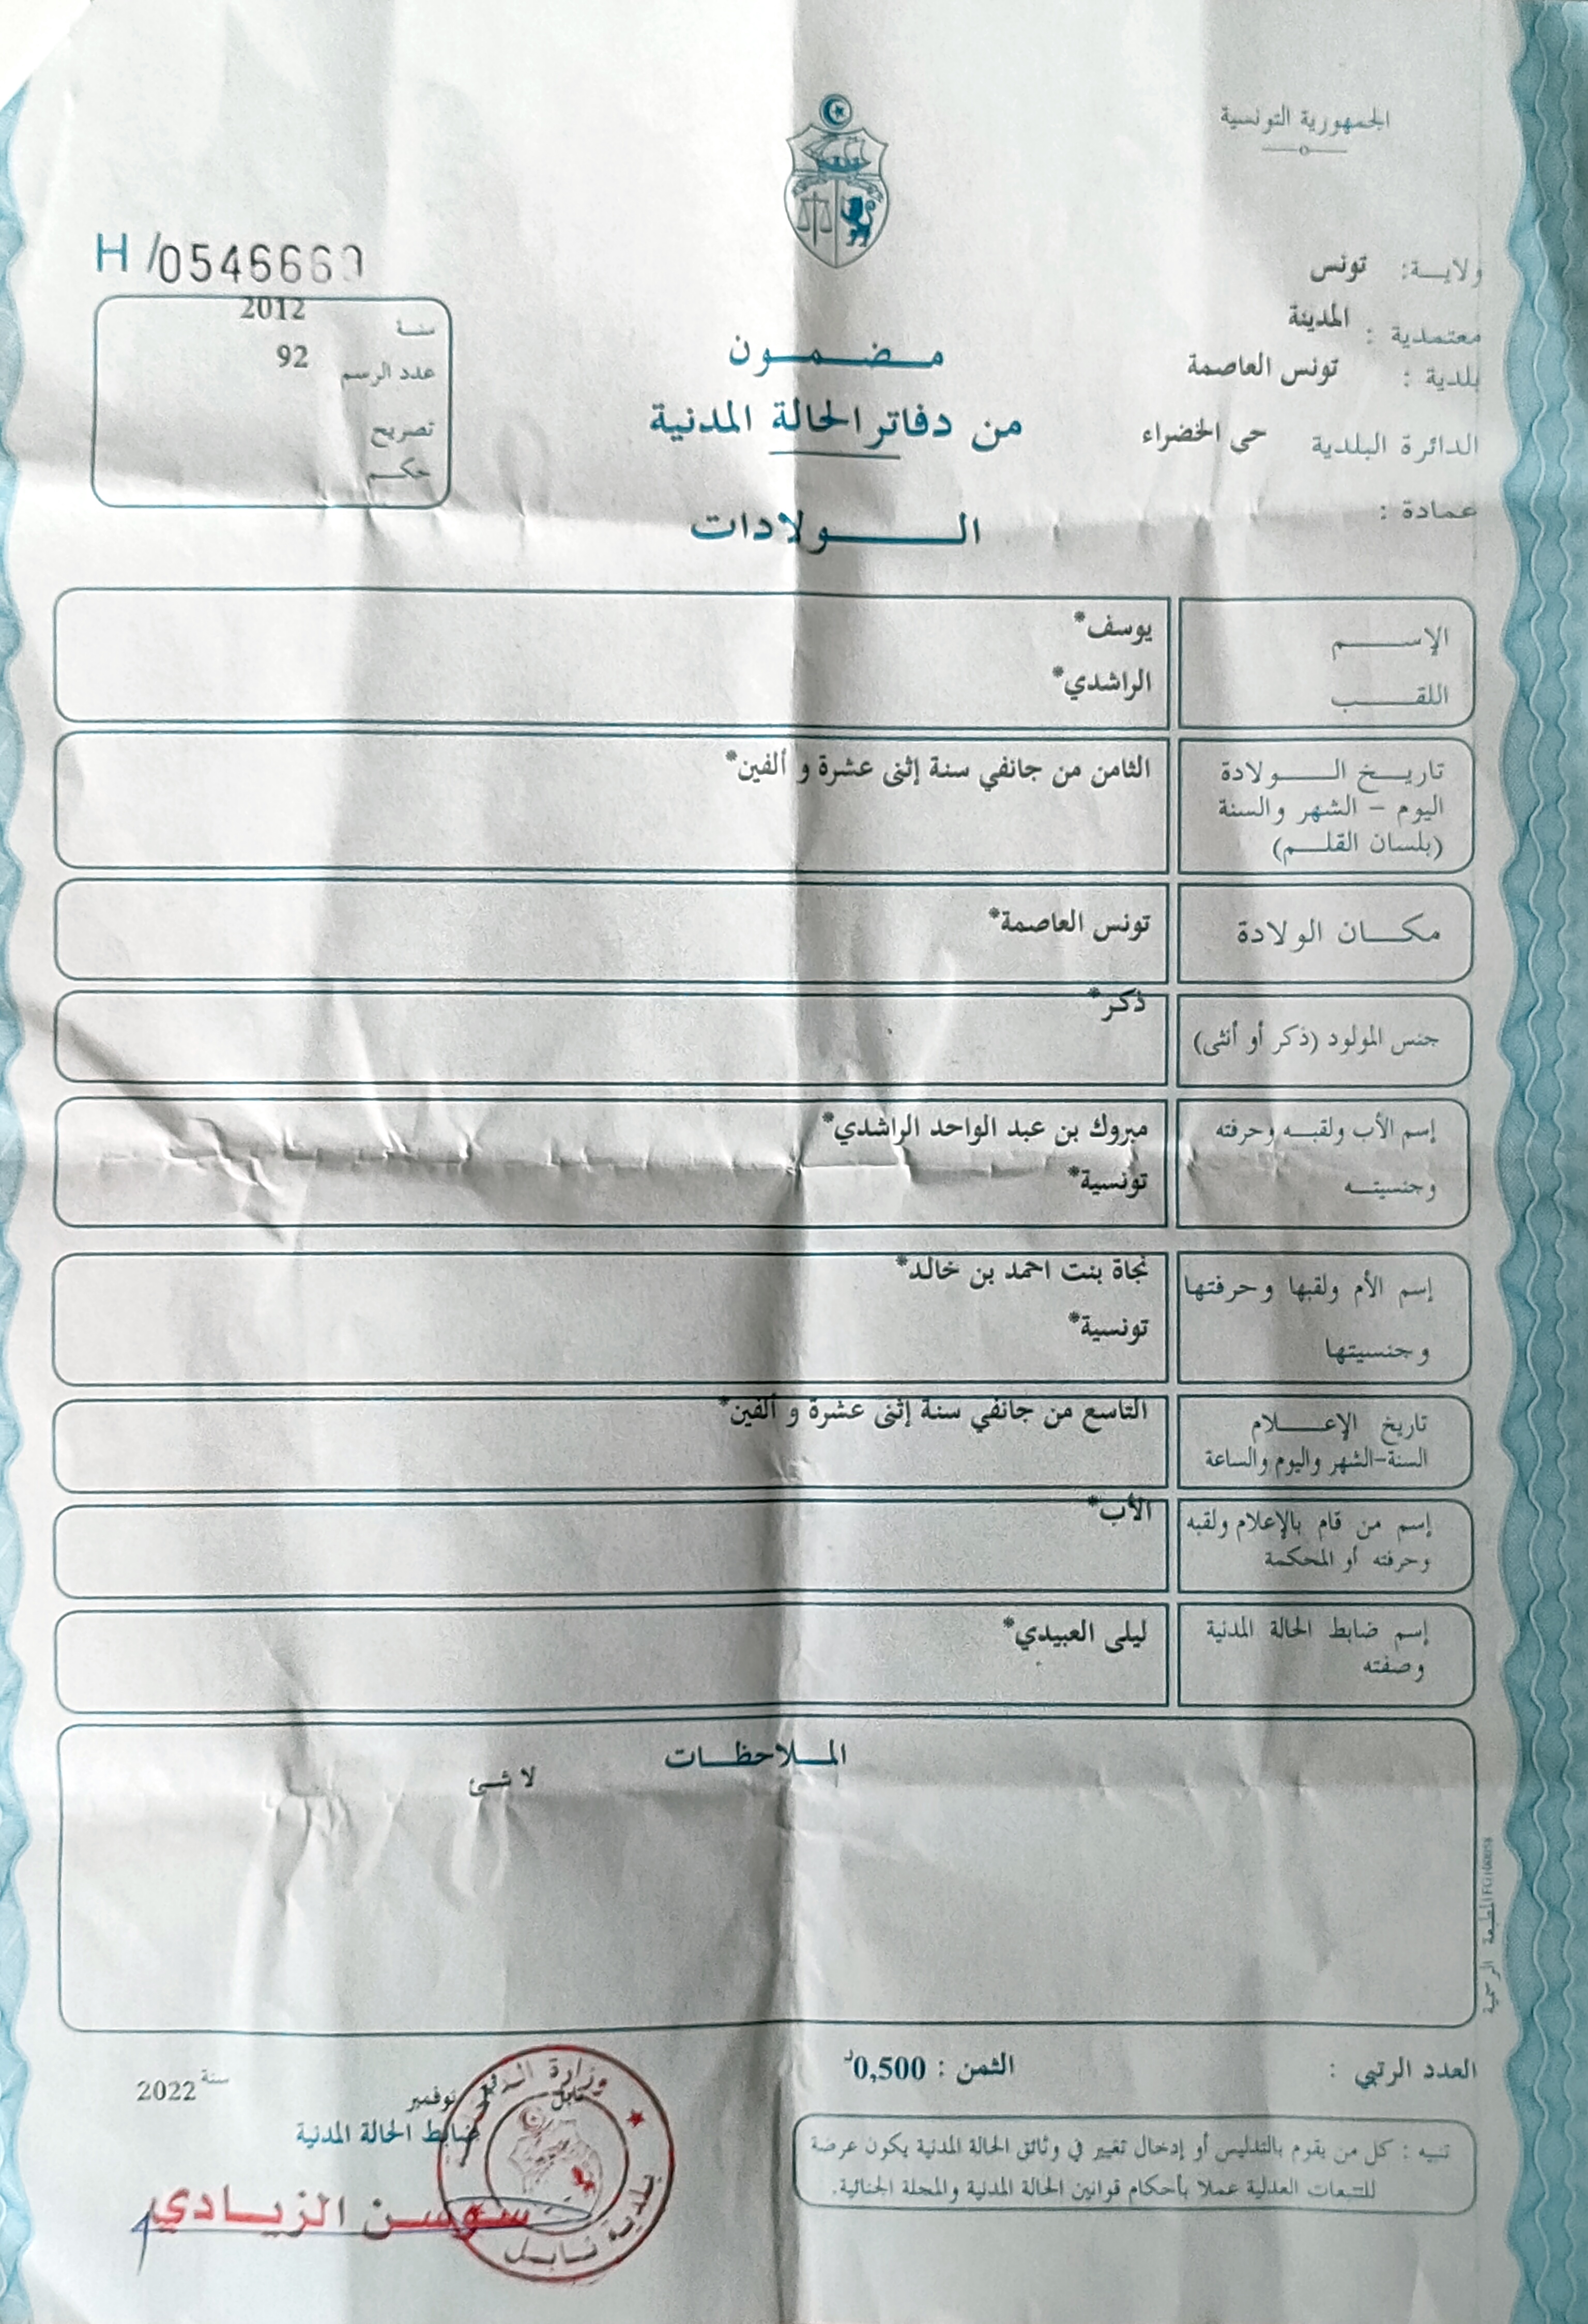 الجمهورية التونسية
ولايـة: تونس
معتمدية : المدينة
بلدية : تونس العاصمة
الدائرة البلدية حي الخضراء
عمادة :
H /0546669
سنة 2012
عدد الرسم 92
تصريح
حكم
مضمون
من دفاتر الحالة المدنية
الولادات
الإسم يوسف*
اللقب الراشدي*
تاريخ الولادة الثامن من جانفي سنة إثنى عشرة و ألفين*
اليوم - الشهر والسنة
(بلسان القلم)
مكان الولادة تونس العاصمة*
جنس المولود (ذكر أو أنثى) ذكر*
إسم الأب ولقبه وحرفته مبروك بن عبد الواحد الراشدي*
وجنسيته تونسية*
إسم الأم ولقبها وحرفتها نجاة بنت احمد بن خالد*
وجنسيتها تونسية*
تاريخ الإعلام التاسع من جانفي سنة إثنى عشرة و ألفين*
السنة-الشهر واليوم والساعة
إسم من قام بالإعلام ولقبه الأب*
وحرفته أو المحكمة
إسم ضابط الحالة المدنية ليلى العبيدي*
وصفته
الملاحظات
لا شئ
المطبعة الرسمية
العدد الرتبي :
الثمن : 0,500د
تنبيه : كل من يقوم بالتدليس أو إدخال تغيير في وثائق الحالة المدنية يكون عرضة
للتتبعات العدلية عملا بأحكام قوانين الحالة المدنية والمجلة الجنائية.
نابل نوفمبر سنة 2022
ضابط الحالة المدنية
سوسن الزيادي
وزارة
بلدية نابل